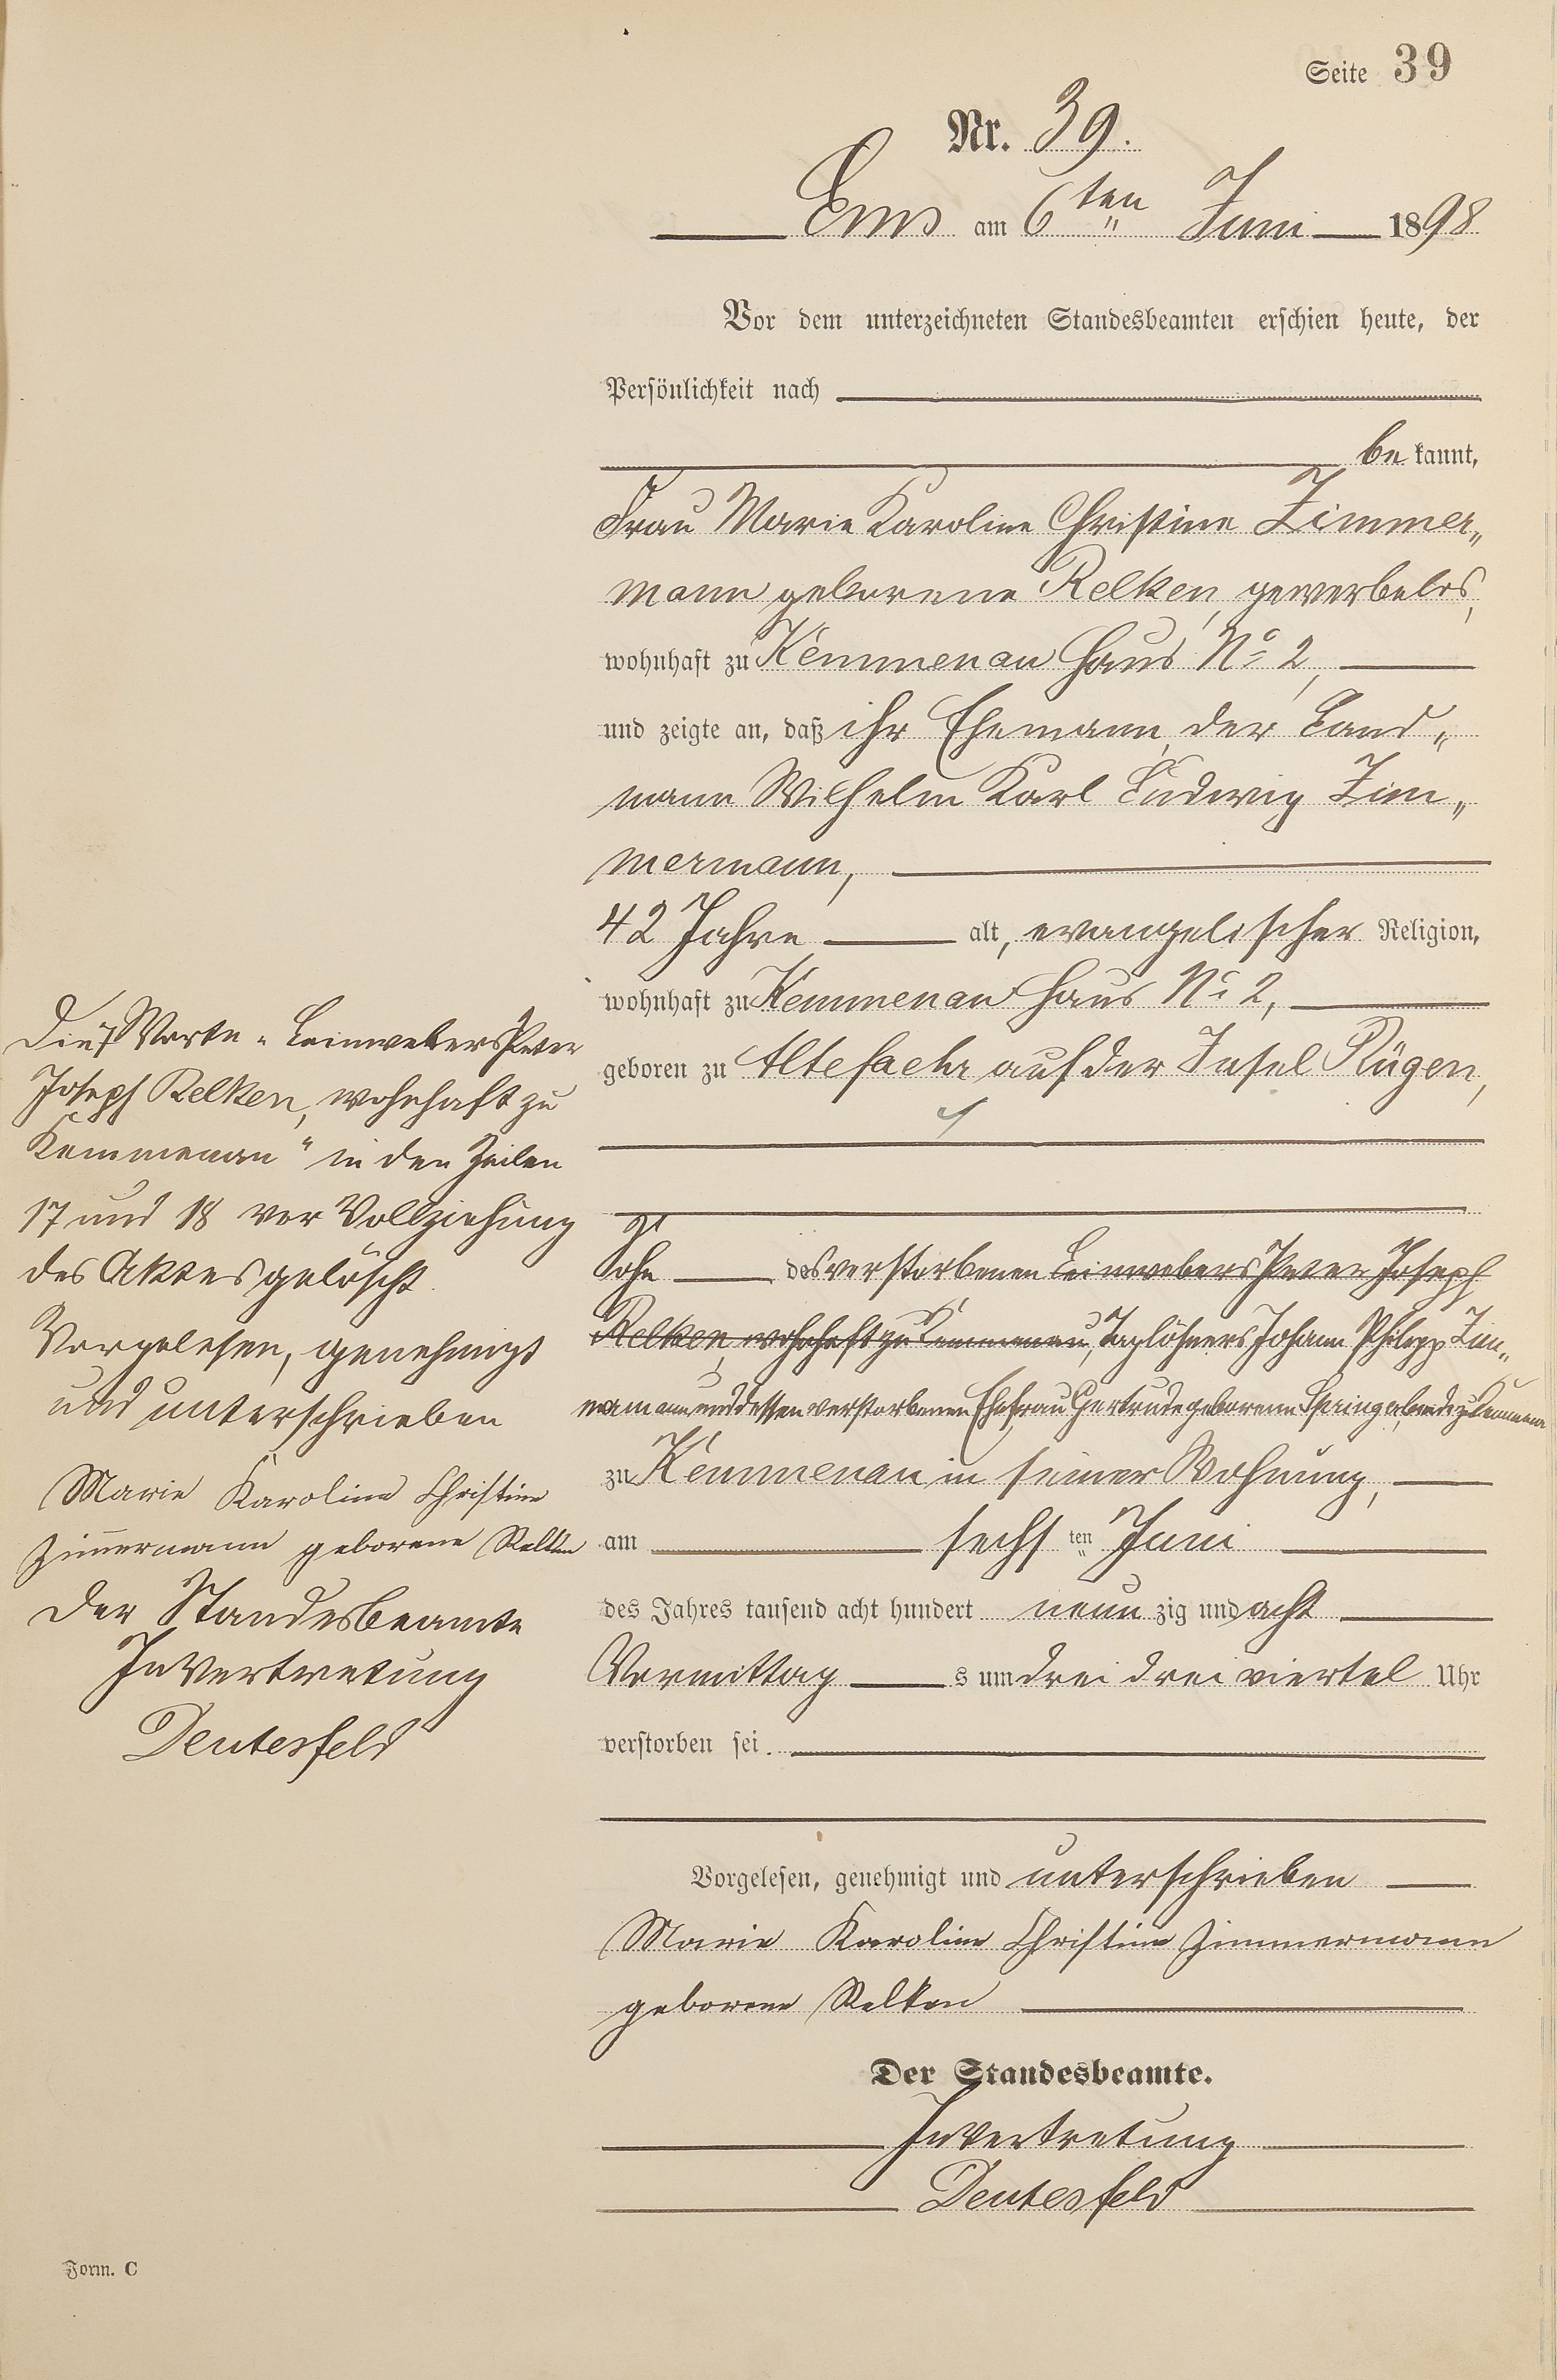 Seite 39
Nr. 39.
Ems am 6ten Juni 1898
Vor dem unterzeichneten Standesbeamten erschien heute, der
Persönlichkeit nach
bekannt,
Frau Marie Karoline Christine Zimmer„
mann geborene Relken, gewerbelos,
wohnhaft zu Kemmenau Haus No 2,
und zeigte an, daß ihr Ehemann, der Land„
mann Wilhelm Karl Ludwig Zim„
mermann,
42 Jahre alt, evangelischer Religion,
wohnhaft zu Kemmenau Haus No 2,
geboren zu Altefaehr auf der Insel Rügen,
Sohn des verstorbenen Leinwebers Peter Joseph
Relken, wohnhaft zu Kemmenau, Taglöhners Johann Philipp Zim„
mermann und dessen verstorbenen Ehefrau Gertrude geborenen
zu Kemmenau in seiner Wohnung,
am sechsten Juni
des Jahres tausend acht hundert neunzig und acht
Vormittags um drei dreiviertel Uhr
verstorben sei.
Vorgelesen, genehmigt und unterschrieben
Marie Karoline Christine Zimmermann
geborene Relken
Der Standesbeamte.
In Vertretung
Deutesfeld
Die 7 Worte „Leinwebers Peter
Joseph Relken, wohnhaft zu
Kemmenau“ in den Zeilen
17 und 18 vor Vollziehung
des Aktes gelöscht.
Vorgelesen, genehmigt
und unterschrieben
Marie Karoline Christine
Zimmermann geborene Relken
Der Standesbeamte
In Vertretung
Deutesfeld
Form. C